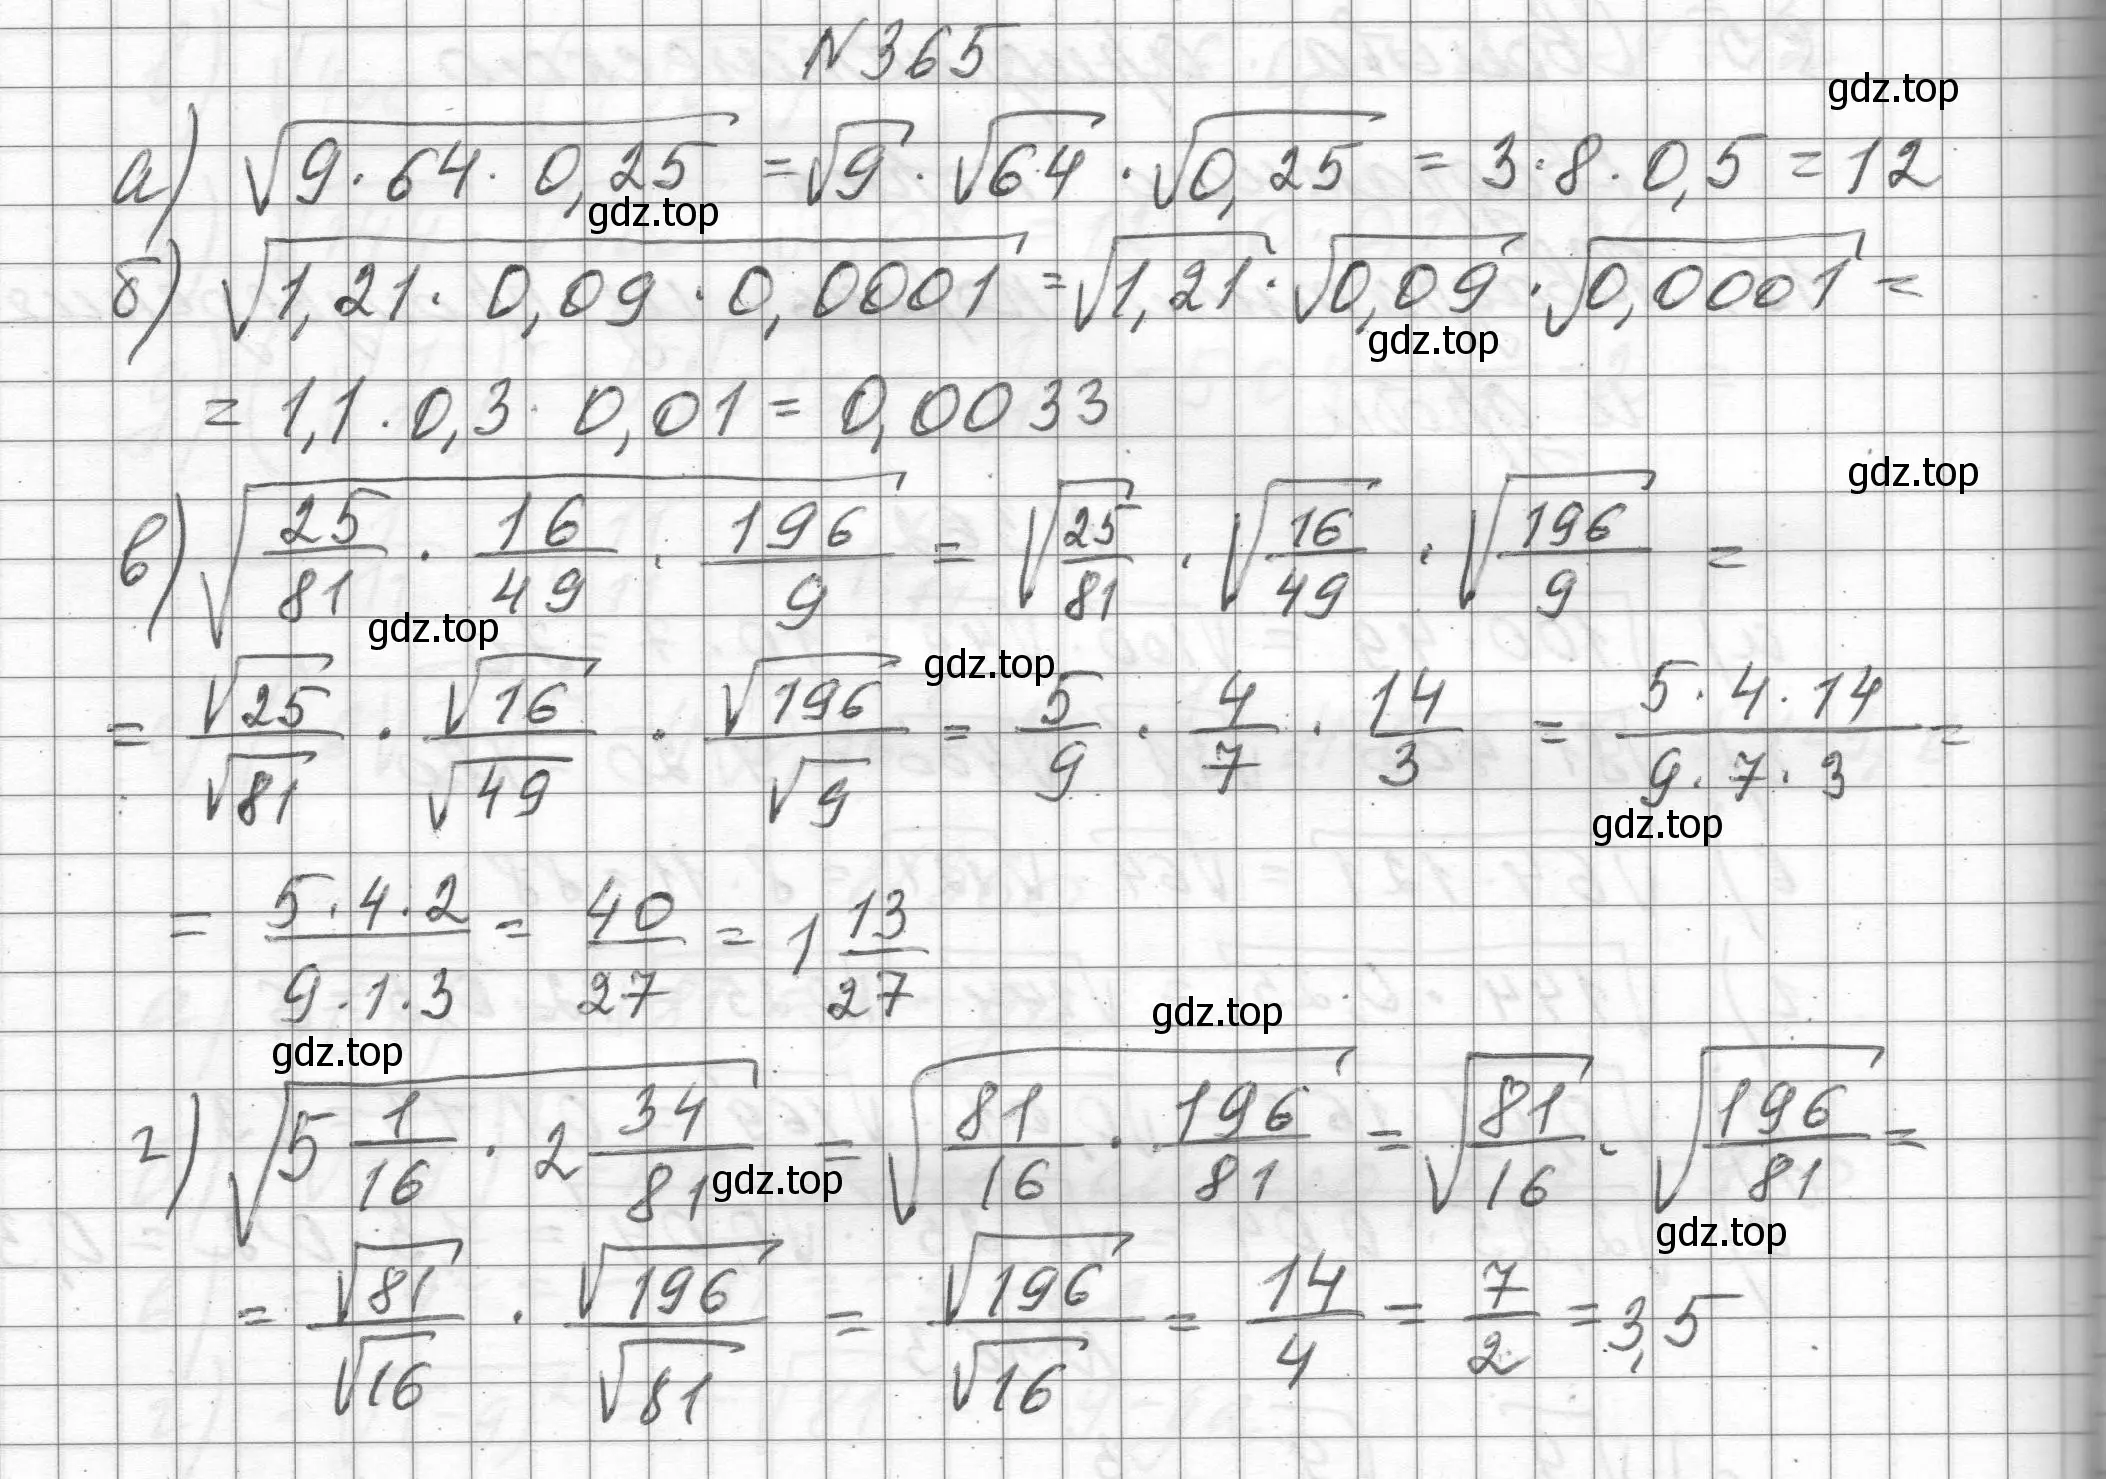 N 365
gdz.top
а) √(9 · 64 · 0,25) = √9 · √64 · √0,25 = 3 · 8 · 0,5 = 12
gdz.top
б) √(1,21 · 0,09 · 0,0001) = √1,21 · √0,09 · √0,0001 =
gdz.top
= 1,1 · 0,3 · 0,01 = 0,0033
gdz.top
в) √(25/81 · 16/49 · 196/9) = √(25/81) · √(16/49) · √(196/9) =
gdz.top
gdz.top
= √25/√81 · √16/√49 · √196/√9 = 5/9 · 4/7 · 14/3 = (5 · 4 · 14)/(9 · 7 · 3) =
gdz.top
= (5 · 4 · 2)/(9 · 1 · 3) = 40/27 = 1 13/27
gdz.top
gdz.top
г) √(5 1/16 · 2 34/81) = √(81/16 · 196/81) = √(81/16) · √(196/81) =
gdz.top
gdz.top
= √81/√16 · √196/√81 = √196/√16 = 14/4 = 7/2 = 3,5